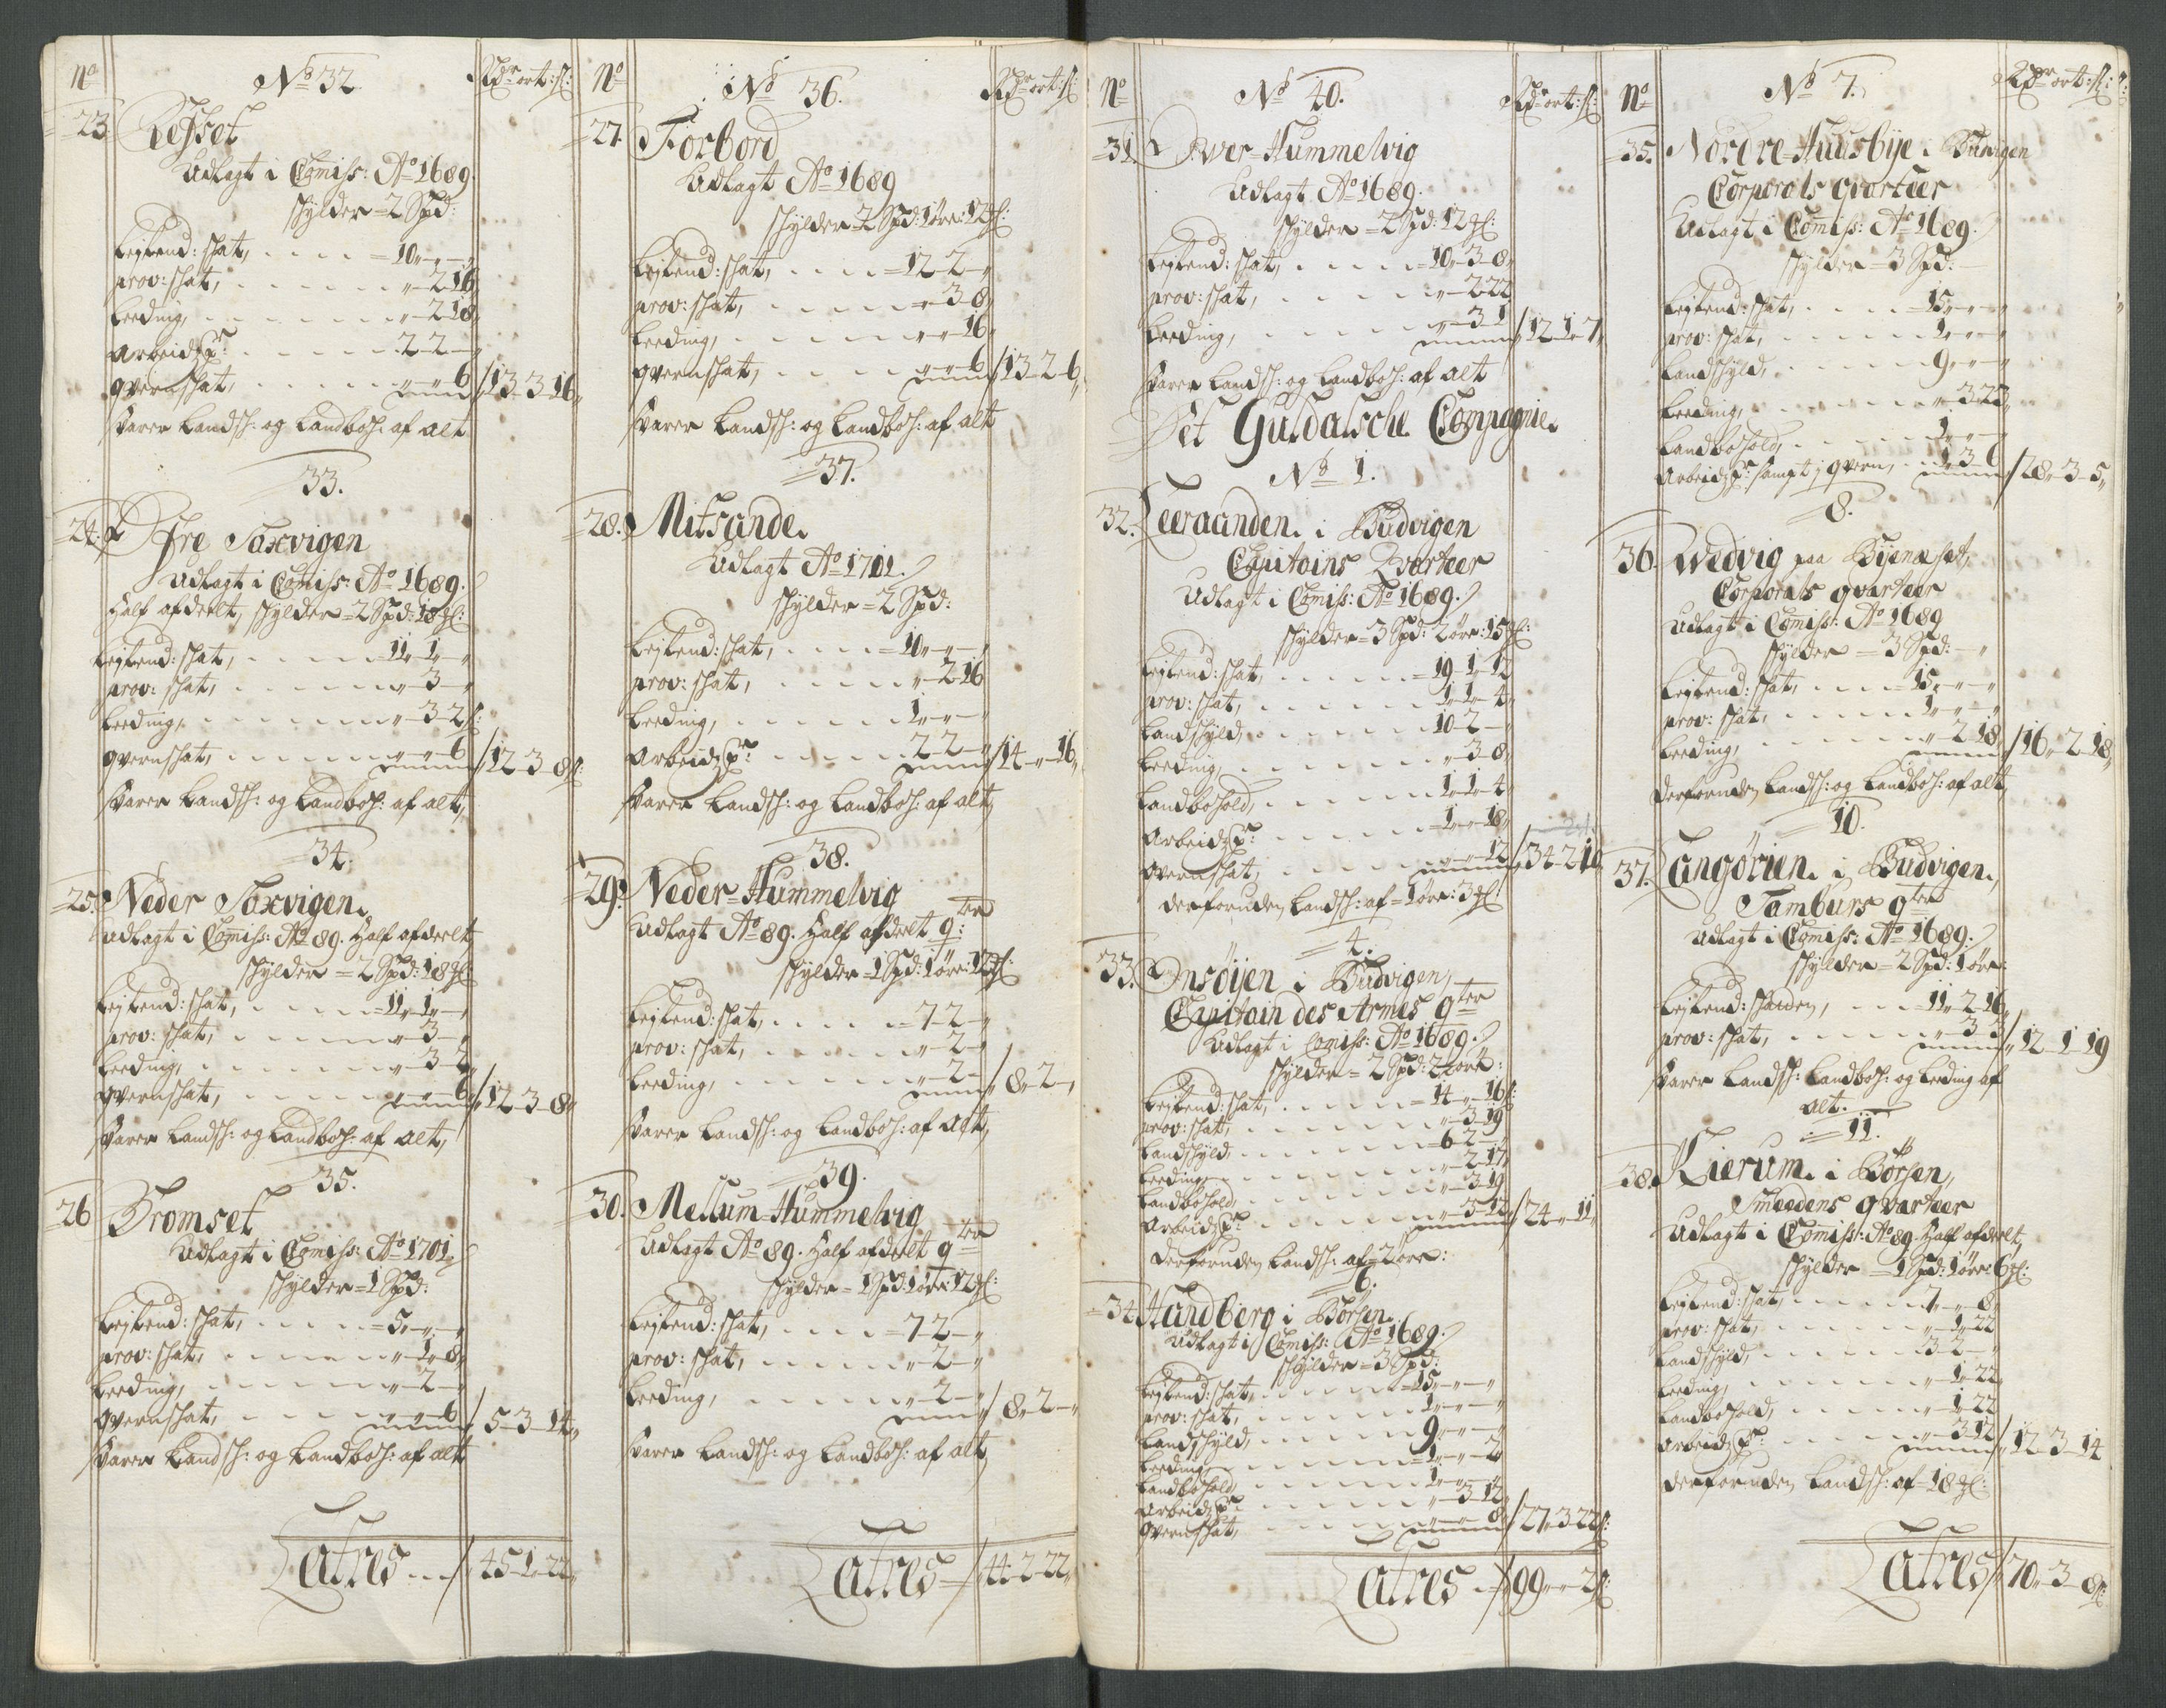 No
No 32.
Rdr ort: s:
23 Lefset
Udlagt i Comiss: Ao 1689.
schylder = 2 Spd:
Lejlend: schat, . . . . = 10 „ – „ – „
prov: schat, . . . . „ – 2 16
Leeding, . . . . „ – 2 18
Arbeidzp: . . . . 2 2 – „
qvernschat, . . . . „ – „ – 6 / 13 – 3 – 16
svarer Landsch: og Landboh: af alt
33.
24. Øfre Saxvigen
Udlagt i Comiss: Ao 1689.
Half afdeelt, schylder = 2 Spd: 18 ml:
Lejlend: schat, . . . . 11 „ 1 „ – „
prov: schat, . . . . „ – 3 – „
Leeding, . . . . „ – 3 – 2 s:
qvernschat, . . . . „ – „ – 6 / 12 – 3 – 8 s:
svarer Landsch: og Landboh: af alt,
34.
25. Neder Saxvigen.
Udlagt i Comiss: Ao 89. Half afdeelt
schylder = 2 Spd: 18 ml:
Lejlend: schat, . . . . = 11 „ 1 „ – „
prov: schat, . . . . „ – 3 – „
Leeding, . . . . „ – 3 – 2
qvernschat, . . . . „ – „ – 6 / 12 – 3 – 8 „
svarer Landsch: og Landboh: af alt,
35.
26 Bromset
Udlagt i Comiss: Ao 1701
schylder = 1 Spd:
Lejlend: schat, . . . . = 5 „ – „ – „
prov: schat, . . . . „ – 1 – 8
Leeding, . . . . „ – 2 – „
qvernschat, . . . . „ – „ – 6 / 5 – 3 – 14 „
svarer Landsch: og Landboh: af alt
Latres . . . / 45 – 1 – 22 „
No
No 36.
Rdr ort: s:
27. Forbord
Udlagt Ao 1689
schylder = 2 Spd: 1 øre: 12 ml:
Lejlend: schat, . . . . = 12 – 2 – „
prov: schat, . . . . „ – 3 – 8 „
Leeding, . . . . „ – „ – 16
qvernschat, . . . . „ – „ – 6 / 13 – 2 – 6 „
svarer Landsch: og Landboh: af alt
37.
28. Mitsande.
Udlagt Ao 1701.
schylder = 2 Spd:
Lejlend: schat, . . . . = 10 „ – „ – „
prov: schat, . . . . „ – 2 – 16
Leeding, . . . . 1 „ – „ – „
Arbeidzp: . . . . 2 – 2 – „ / 14 – „ – 16 „
svarer Landsch: og Landboh: af alt,
38.
29. Neder = Hummelvig
Udlagt Ao 89. Half afdeelt qter
schylder = 1 Spd: 1 øre: 12 ml:
Lejlend: schat, . . . . = 7 – 2 – „
prov: schat, . . . . „ – 2 – „
Leeding, . . . . „ – 2 – „ / 8 „ – 2 – „
svarer Landsch: og Landboh: af alt,
39.
30. Mellum = Hummelvig
Udlagt Ao 89. Half afdeelt qter
schylder = 1 Spd: 1 øre: 12 ml:
Lejlend: schat, . . . . = 7 2 – „
prov: schat, . . . . „ – 2 – „
Leeding, . . . . „ – 2 – „ / 8 „ – 2 – „
svarer Landsch: og Landboh: af alt
Latres = / 44 – 2 – 22 „
No
No 40.
Rdr ort: s:
31. Over = Hummelvig
Udlagt Ao 1689.
schylder = 2 Spd: 12 ml:
Lejlend: schat, . . . . = 10 – 3 – 8 „
prov: schat, . . . . „ – 2 – 22
Leeding, . . . . „ – 3 – 1 / 12 – 1 – 7 „
svarer Landsch: og Landboh: af alt
Det Guldalsche Compagnie.
No 1.
32. Leeraanden. i Budvigen
Capitains Qvarteer
Udlagt i Comiss: Ao 1689.
schylder = 3 Spd: 2 øre: 15 ml:
Lejlend: schat, . . . . = 19 – 1 – 12
prov: schat, . . . . 1 – 1 – 4
Landschyld, . . . . 10 – 2 – „
Leeding, . . . . „ – 3 – 8 „
Landbohold, . . . . 1 – 1 – 4
Arbeidzp: . . . . = 1 – „ – 18 „
qvernschat, . . . . „ – „ – 12 / 34 – 2 – 10
derforuden Landsch: af = 1 øre: 3 ml
4.
33. Onsøijen i Budvigen,
Capitain des Armes qter
Udlagt i Comiss: Ao 1689.
schylder = 2 Spd: 2 øre:
Lejlend: schat, . . . . = 14 – „ – 16 s:
prov: schat, . . . . „ – 3 – 19
Landschyld, . . . . = 6 – 2 – „
Leeding, . . . . „ – 2 – 17
Landbohold, . . . . „ – 3 – 19
Arbeidzp: . . . . „ – 3 – 12 / 24 – „ – 11 „
derforuden Landsch: af = 2 øre:
6.
34. Handberg i Børsen.
Udlagt i Comiss: Ao 1689.
schylder = 3 Spd:
Lejlend: schat, . . . . = 15 „ – „ – „
prov: schat, . . . . 1 „ – „ – „
Landschyld, . . . . 9 „ – „ – „
Leeding, . . . . = 1 „ – „ – 2
Landbohold, . . . . 1 „ – „ – „
Arbeidzp: . . . . „ – 3 – 12
qvernschat, . . . . „ – „ – 8 / 27 – 3 – 22 s:
Latres . / 99 – „ – 2 s:
No
No 7.
Rdr ort: s:
35. Nordre = Huusbye i Buvigen
Corporals qvarteer
Udlagt i Comiss: Ao 1689.
schylder = 3 Spd:
Lejlend: schat, . . . . 15 „ – „ – „
prov: schat, . . . . 1 „ – „ – „
Landschyld, . . . . 9 „ – „ – „
Leeding, . . . . „ – 3 – 23
Landbohold, . . . . 1 „ – „
Arbeidzp: sampt j qvern, . . 1 – 3 – 6 / 28 – 3 – 5 „
8.
36. Wedvig paa Byenæset,
Corporals qvarteer
Udlagt i Comiss: Ao 1689
schylder = 3 Spd:
Lejlend: schat, . . . . = 15 „ – „ – „
prov: schat, . . . . 1 „ – „ – „
Leeding, . . . . „ – 2 – 18 / 16 „ 2 – 18 „
derforuden Landsch: og Landboh: af alt,
10.
37. Langørien. i Budvigen.
Tamburs qter
Udlagt i Comiss: Ao 1689.
schylder = 2 Spd: 1 øre:
Lejlend: schatten, . . . = 11 „ 2 – 16
prov: schat, . . . . „ – 3 – 3 / 12 – 1 – 19
svarer Landsch: Landboh: og Leding af
alt.
11.
38. Kierum. i Børsen,
Smedens qvarteer
Udlagt i Comiss: Ao 89. Half afdeelt,
schylder = 1 Spd: 1 øre: 6 ml:
Lejlend: schat, . . . . 7 „ – „ – 8
prov: schat, . . . . „ – 1 – 22
Landschyld, . . . . 3 – 2 – „
Leeding, . . . . „ – 1 – 22
Landbohold, . . . . „ – 1 – 22
Arbeidzp: . . . . „ – 3 – 12 / 12 – 3 – 14
derforuden Landsch: af – 18 ml:
Latres / 70 – 3 – 8 s: